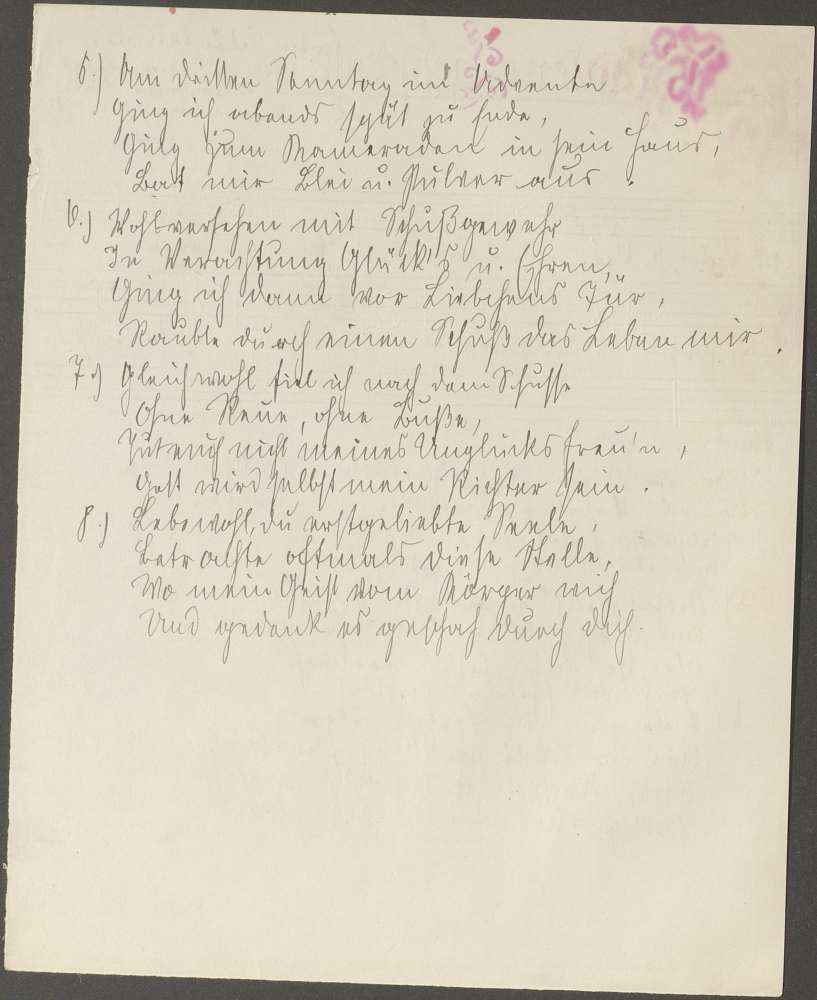 5.) Am dritten Sonntag im Advente
Ging ich abends spät zu Ende,
Ging zum Kameraden in sein Haus,
Bat mir Blei u. Pulver aus.
6.) Wohlversehen mit Schußgewehr
In Verachtung Glück's u. Ehren,
Ging ich dann vor Liebchens Tür,
Raubte durch einen Schuß das Leben mir.
7.) Gleichwohl fiel ich nach dem Schusse
Ohne Reue, ohne Buße,
Tut euch nicht meines Unglücks freu'n,
Gott wird selbst mein Richter sein.
8.) Lebewohl, du erstgeliebte Seele,
Betrachte oftmals diese Stelle,
Wo mein Geist vom Körper wich
Und gedenk es geschah durch dich.